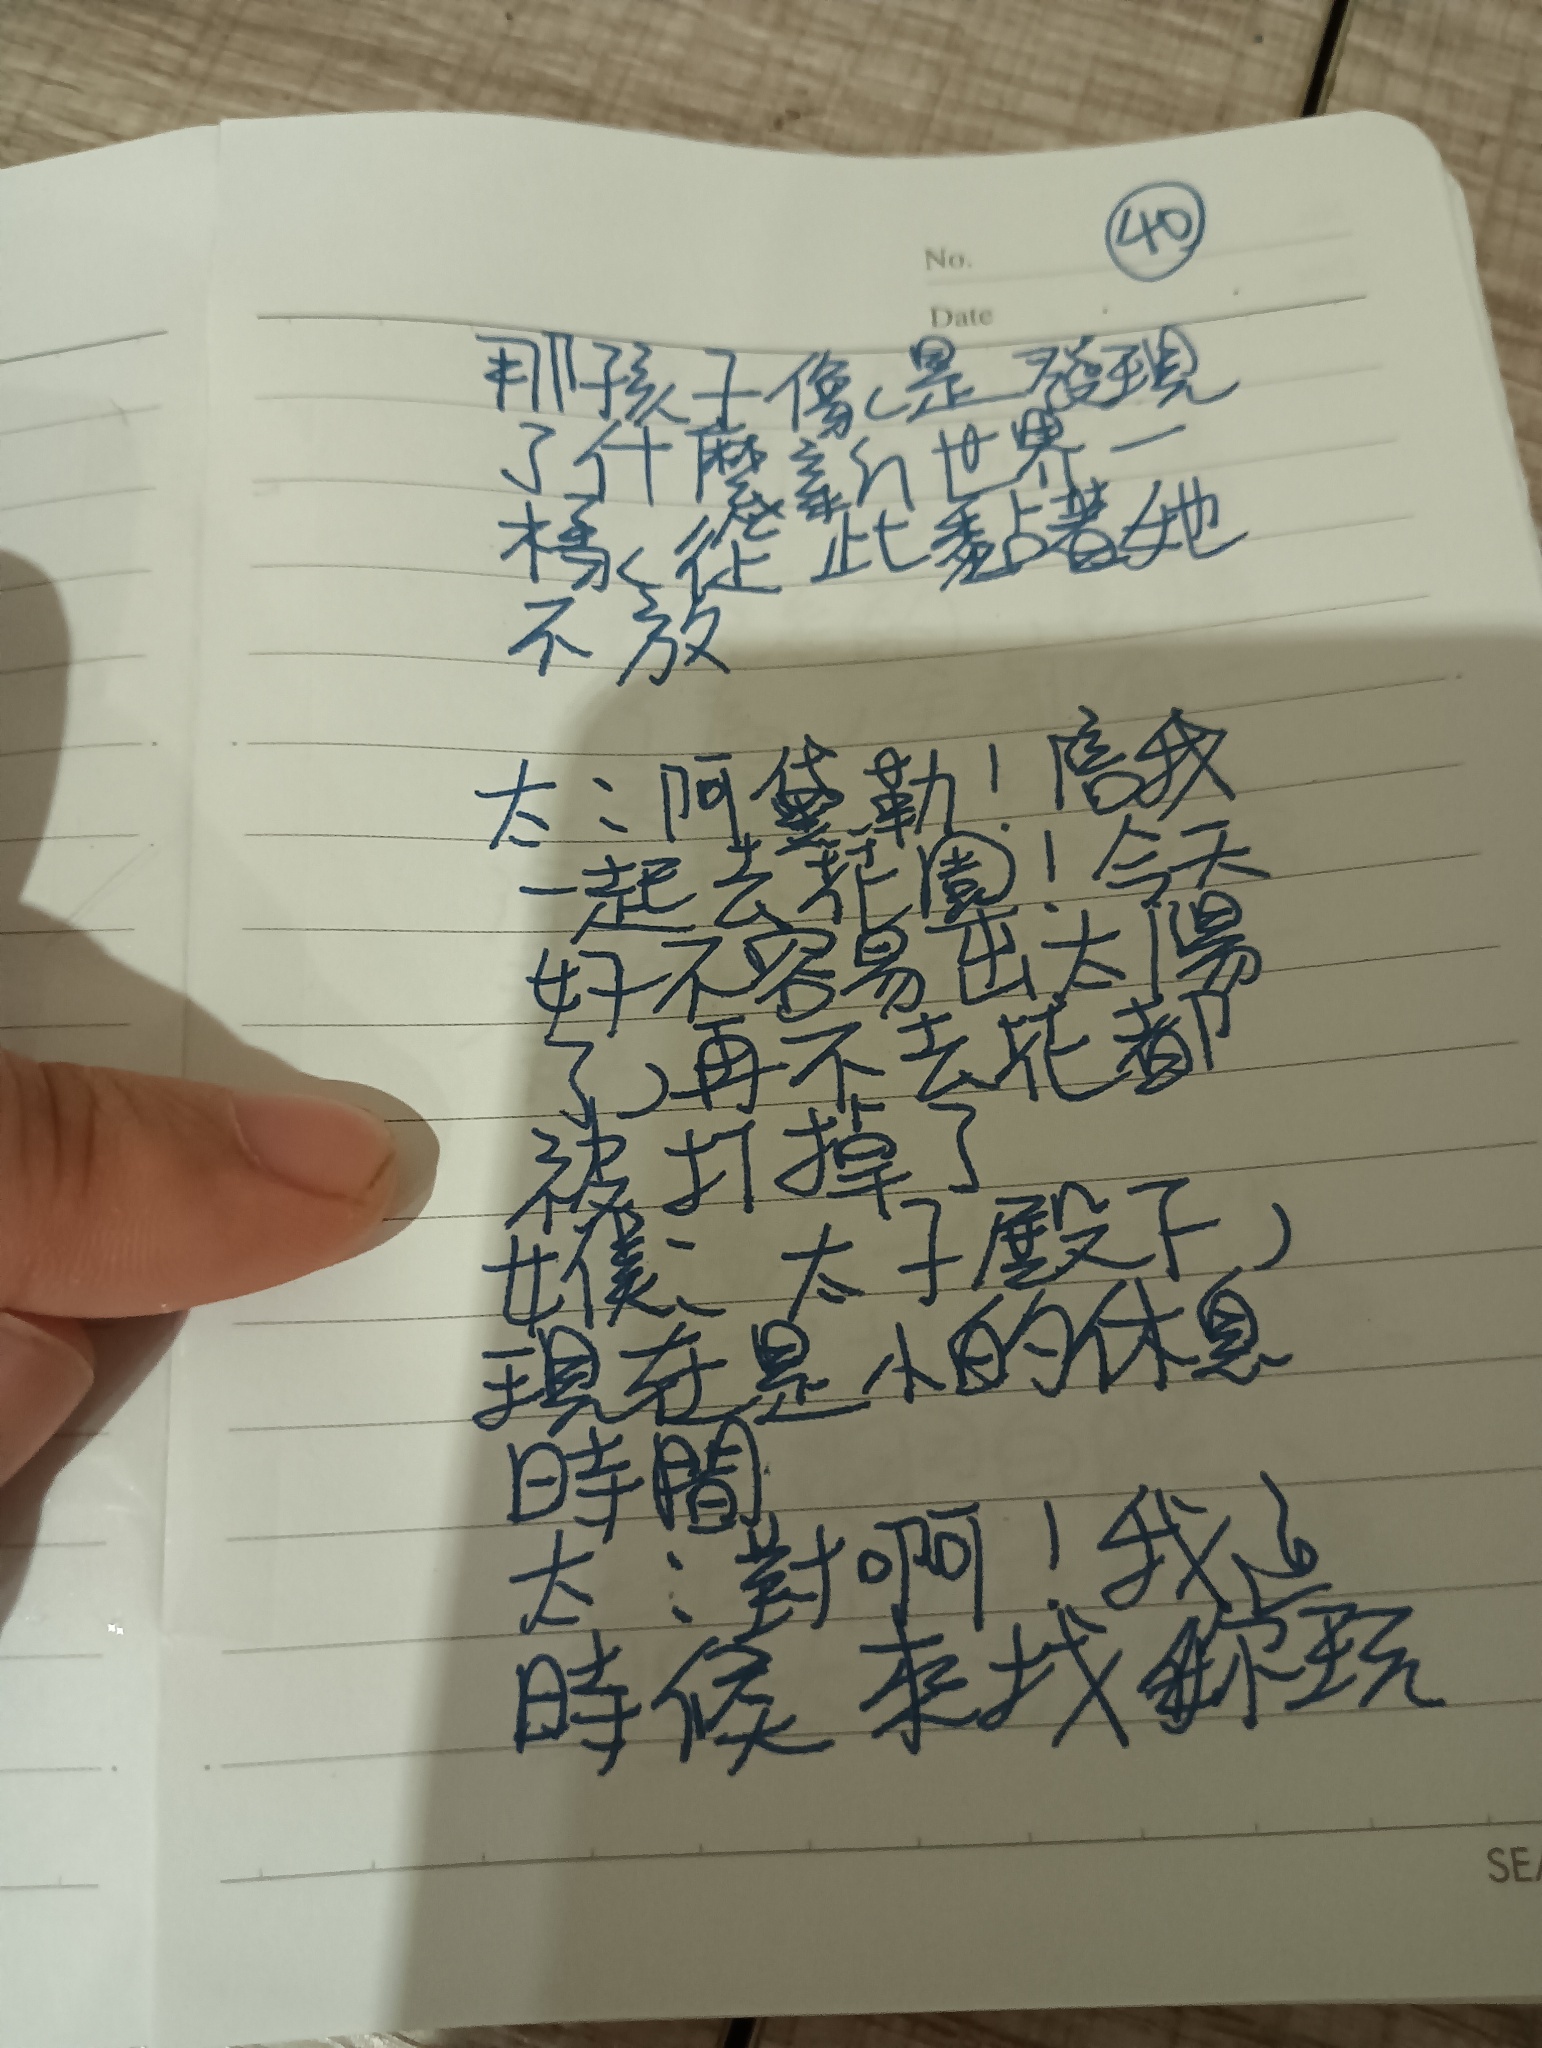 No. 40
Date
那孩子像是發現
了什麼新世界一
樣從此黏著她
不放
太：阿黛勒！陪我
一起去花園！今天
好不容易出太陽
了,再不去花都
被打掉了
女僕：太子殿下,
現在是小的休息
時間
太：對啊！我這
時候來找妳玩
SEA